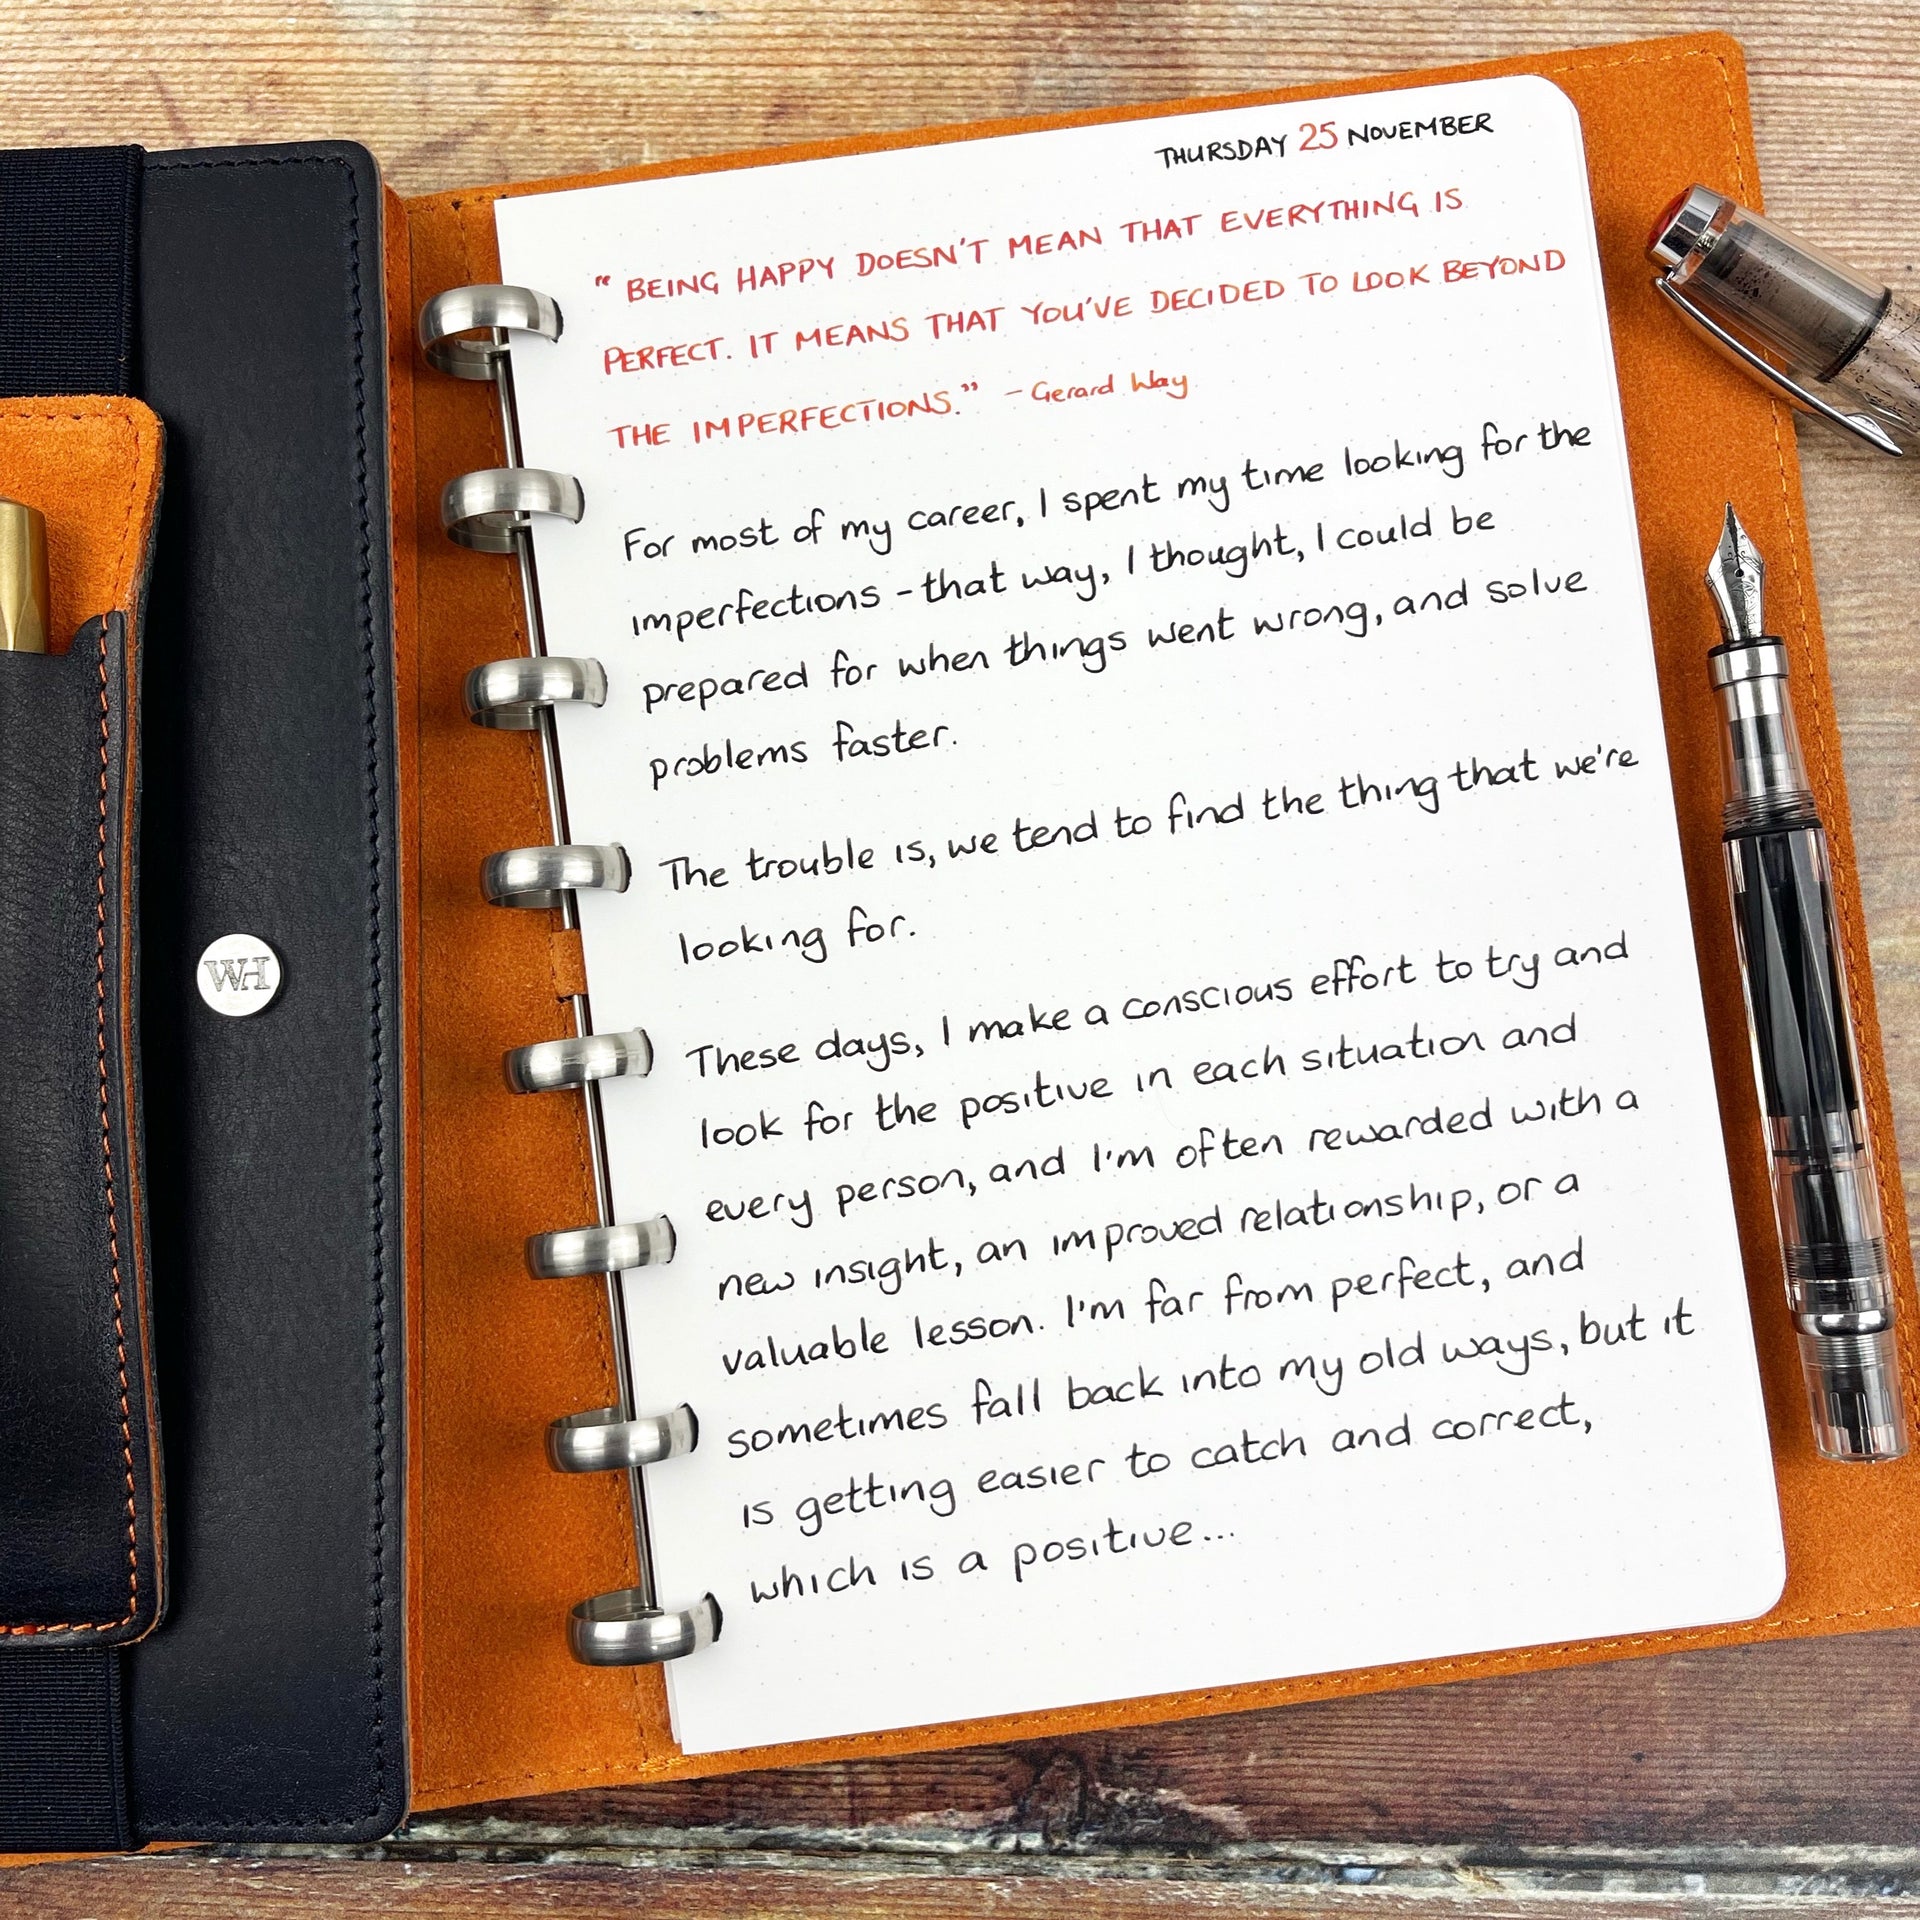 THURSDAY 25 NOVEMBER
"BEING HAPPY DOESN'T MEAN THAT EVERYTHING IS
PERFECT. IT MEANS THAT YOU'VE DECIDED TO LOOK BEYOND
THE IMPERFECTIONS." - Gerard Way
For most of my career, I spent my time looking for the
imperfections - that way, I thought, I could be
prepared for when things went wrong, and solve
problems faster.
The trouble is, we tend to find the thing that we're
looking for.
These days, I make a conscious effort to try and
look for the positive in each situation and
every person, and I'm often rewarded with a
new insight, an improved relationship, or a
valuable lesson. I'm far from perfect, and
sometimes fall back into my old ways, but it
is getting easier to catch and correct,
which is a positive...
WH